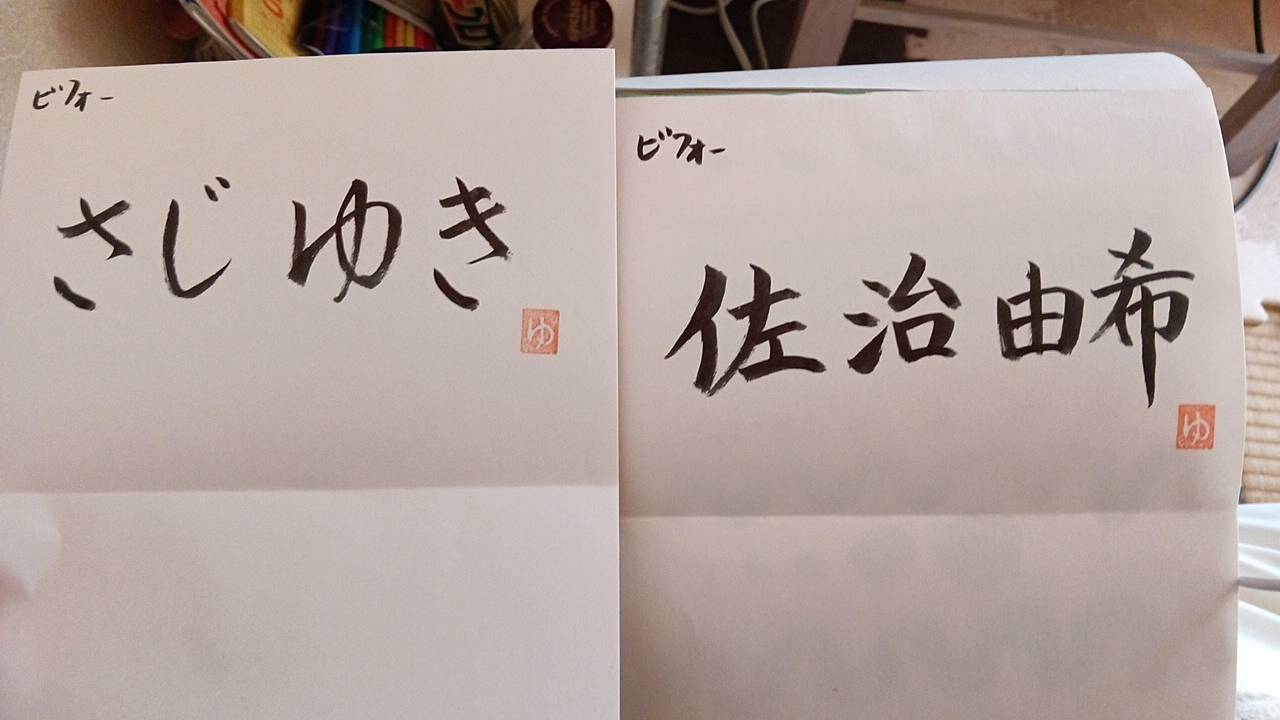 ビフォー
さじ ゆき
ゆ
ビフォー
佐治由希
ゆ